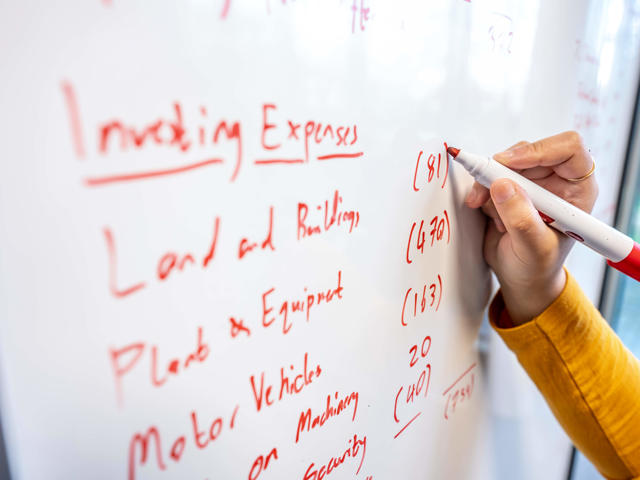 Investing Expenses
(81)
Land and Buildings
(470)
Plant & Equipment
(163)
Motor Vehicles
20
on Machinery
(40)
Security